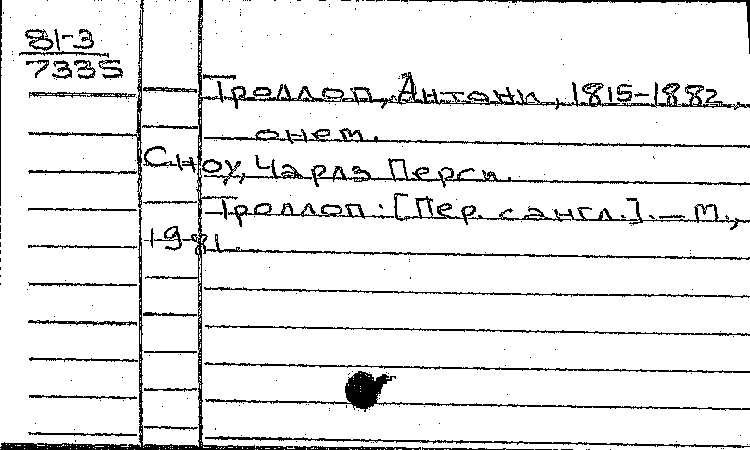 81-3
7335
Троллоп, Антони, 1815-1882,
о нем.
Сноу, Чарлз Перси.
Троллоп: [Пер. с англ.]. — М.,
1981.